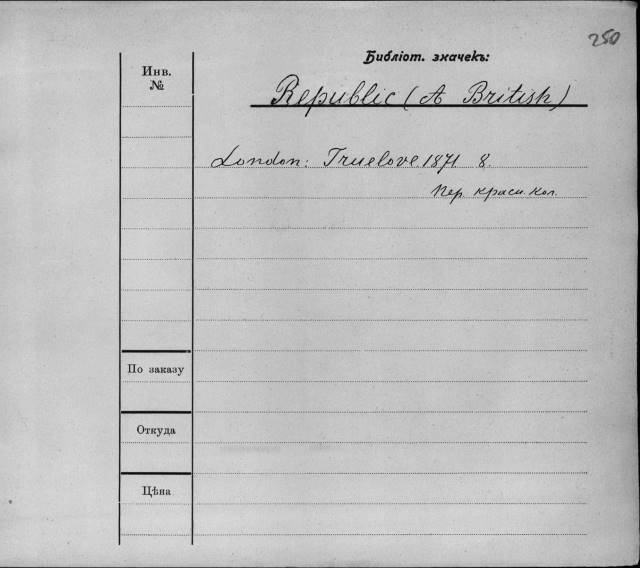 250
Библіот. значекъ:
Инв.
№
Republic (A British)
London: Truelove. 1871 8.
Пер. красн. кол.
По заказу
Откуда
Цѣна